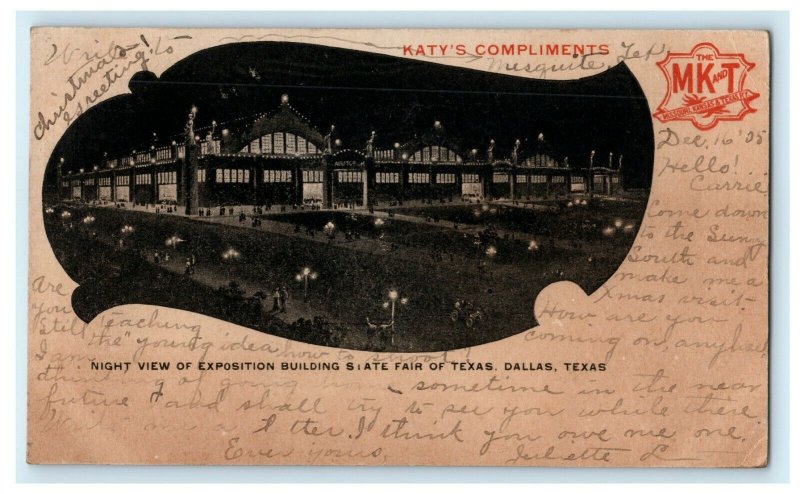 Write to
Christmas
greeting!
KATY'S COMPLIMENTS
Mesquite, Tex
THE
MK AND T
MISSOURI, KANSAS & TEXAS RY.
Dec, 16 '05
Hello!
Carrie
Come down
to the Sunny
South and
make me a
Xmas visit-
How are you
coming on, anyhow
Are
you
still teaching
the "young idea how to shoot!
NIGHT VIEW OF EXPOSITION BUILDING STATE FAIR OF TEXAS. DALLAS, TEXAS
I am
thinking of going home sometime in the near
future and shall try to see you while there
Write me a letter. I think you owe me one.
Ever yours,
Juliette L